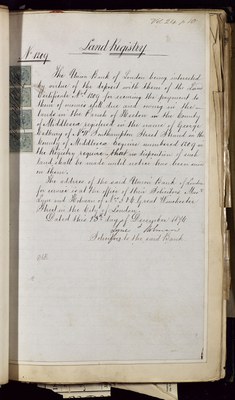 Land Registry
No 1209
The Union Bank of London being interested
by virtue of the deposit with them of the Land
Certificate No 1209 for securing the payment to
them of moneys due and owing in the
lands in the Parish of in the County
of Middlesex registered in the name of George
of No Southampton Street Strand in the
County of Middlesex Esquire numbered 1209 on
the Register require that no disposition of such
land shall be made until notice has been served
on them.
The address of the said Union Bank of London
for service is at the office of their Solicitors Messrs
Lyne and Holman of No Great Winchester
Street in the City of London
Dated this day of December 1876
Lyne & Holman
Solicitors to the said Bank